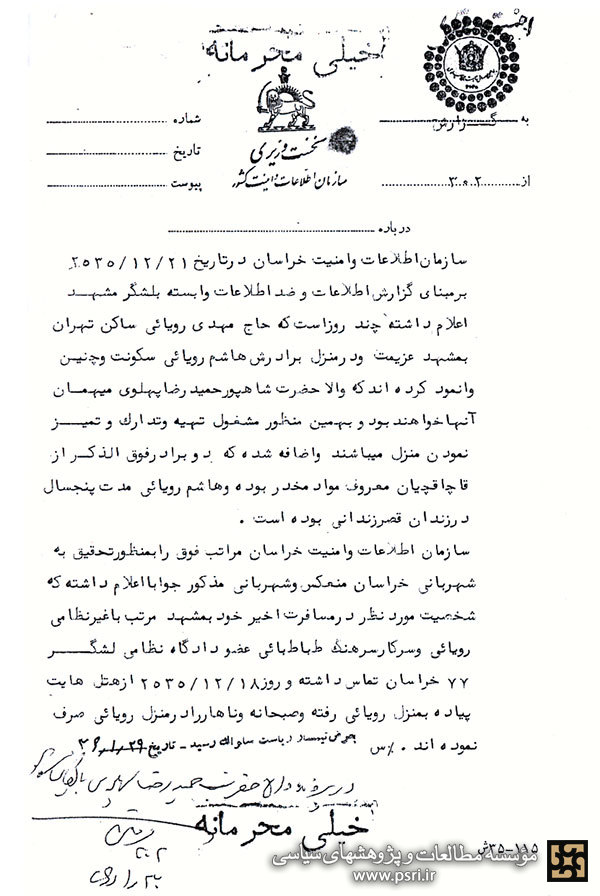 خیلی محرمانه
به گـــزارش
شماره
نخست وزیری
تاریخ
سازمان اطلاعات و امنیت کشور
از ۳۰۲
پیوست
درباره
سازمان اطلاعات وامنیت خراسان درتاریخ ۲۵۳۵/۱۲/۲۱
برمبنای گزارش اطلاعات و ضد اطلاعات وابسته بلشگر مشهـــد
اعلام داشته چند روزاست که حاج مهدی رویائی ساکن تهران
بمشهد عزیمت ودرمنزل برادرش هاشم رویائی سکونت وچنیـن
وانمود کرده اند که والا حضرت شاهپورحمید رضا پهلوی میهمـان
آنها خواهند بود و بهمین منظور مشغول تهیه وتدارك و تمیـــز
نمودن منزل میباشند واضافه شده که دو برادر فوق الذکــر از
قاچاقچیان معروف مواد مخدر بوده وهاشم رویائی مدت پنجسال
درزندان قصرزندانی بوده است .
سازمان اطلاعات وامنیت خراسان مراتب فوق رابمنظورتحقیق به
شهربانی خراسان منعکس وشهربانی مذکور جوابا اعلام داشته که
شخصیت مورد نظر درمسافرت اخیر خود بمشهد مرتب باغیرنظامی
رویائی وسرکارسرهنگ طباطبائی عضو دادگاه نظامی لشگـــر
۷۷ خراسان تماس داشته و روز ۲۵۳۵/۱۲/۱۸ ازهتل هایت
پیاده بمنزل رویائی رفته وصبحانه وناهاررادرمنزل رویائی صرف
نموده اند . %س بعرض تیمسار ریاست ساواك رسید - تاریخ ۳۶/۱/۲۹
در پرونده والا حضرت حمیدرضا پهلوی بایگانی شود
خیلی محرمانه
۳۵-۱۱۵ش
مؤسسه مطالعات و پژوهشهای سیاسی
www.psri.ir